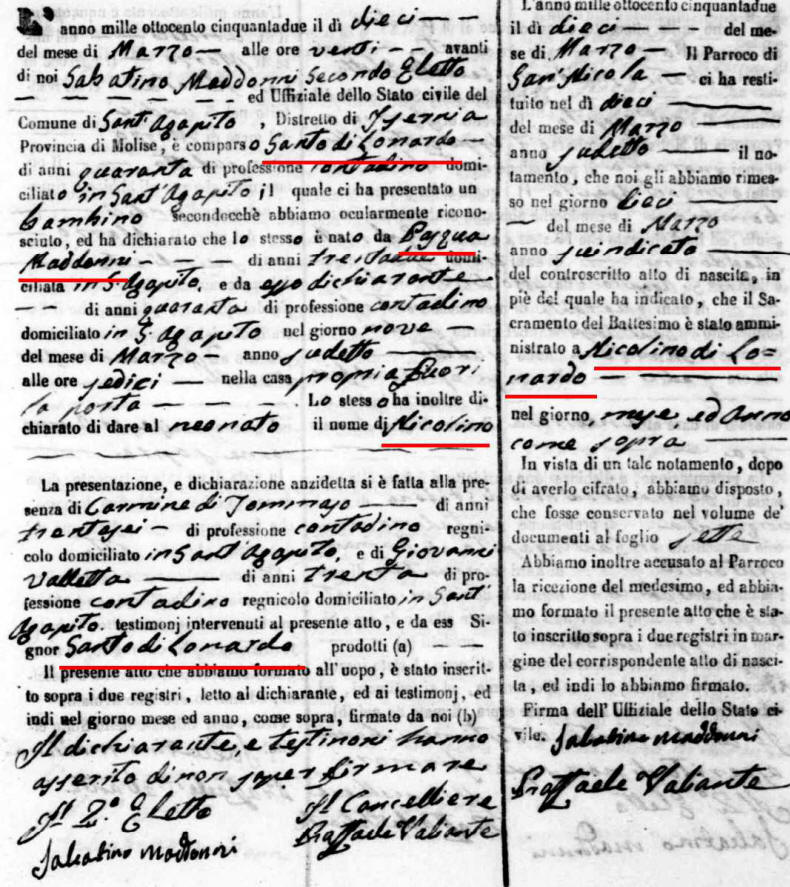 L' anno mille ottocento cinquantadue il dì dieci — —
del mese di Marzo — alle ore venti — — avanti
di noi Sabatino Maddonni Secondo Eletto
— — — — — — — ed Uffiziale dello Stato civile del
Comune di Sant'Agapito , Distretto di Isernia
Provincia di Molise, è comparso Santo di Lonardo —
di anni quaranta di professione contadino domi-
ciliato in Sant'Agapito il quale ci ha presentato un
bambino secondocchè abbiamo ocularmente ricono-
sciuto, ed ha dichiarato che lo stesso è nato da Pasqua
Maddonni — — — di anni trentadue domi-
ciliata in S. Agapito, e da esso dichiarante
— — di anni quaranta di professione contadino
domiciliato in S. Agapito nel giorno nove —
del mese di Marzo — anno sudetto —
alle ore sedici — nella casa propria fuori
la porta — Lo stesso ha inoltre di-
chiarato di dare al neonato il nome di Nicolino
La presentazione, e dichiarazione anzidetta si è fatta alla pre-
senza di Carmine di Tommaso — di anni
trentasei — di professione contadino regni-
colo domiciliato in Sant'Agapito, e di Giovanni
Valletta — di anni trenta di pro-
fessione contadino regnicolo domiciliato in Sant'
Agapito. testimonj intervenuti al presente atto, e da ess Si-
gnor Santo di Lonardo prodotti (a) — —
Il presente atto che abbiamo formato all'uopo, è stato inserit-
to sopra i due registri, letto al dichiarante, ed ai testimonj, ed
indi nel giorno mese ed anno, come sopra, firmato da noi (b)
Il dichiarante, e testimoni hanno
asserito di non saper firmare
Il 2.º Eletto Il Cancelliere
Sabatino Maddonni Raffaele Valiante
L'anno mille ottocento cinquantadue
il dì dieci — — del me-
se di Marzo — Il Parroco di
San Nicola — ci ha resti-
tuito nel dì dieci —
del mese di Marzo
anno sudetto — il no-
tamento, che noi gli abbiamo rimes-
so nel giorno dieci —
— del mese di Marzo
anno suindicato —
del controscritto atto di nascita, in
piè del quale ha indicato, che il Sa-
cramento del Battesimo è stato ammi-
nistrato a Nicolino di Lo=
nardo — — — —
nel giorno, mese, ed Anno
come sopra —
In vista di un tale notamento, dopo
di averlo cifrato, abbiamo disposto,
che fosse conservato nel volume de'
documenti al foglio sette
Abbiamo inoltre accusato al Parroco
la ricezione del medesimo, ed abbia-
mo formato il presente atto che è sta-
to inscritto sopra i due registri in mar-
gine del corrispondente atto di nasci-
ta, ed indi lo abbiamo firmato.
Firma dell' Uffiziale dello Stato ci-
vile. Sabatino Maddonni
Raffaele Valiante